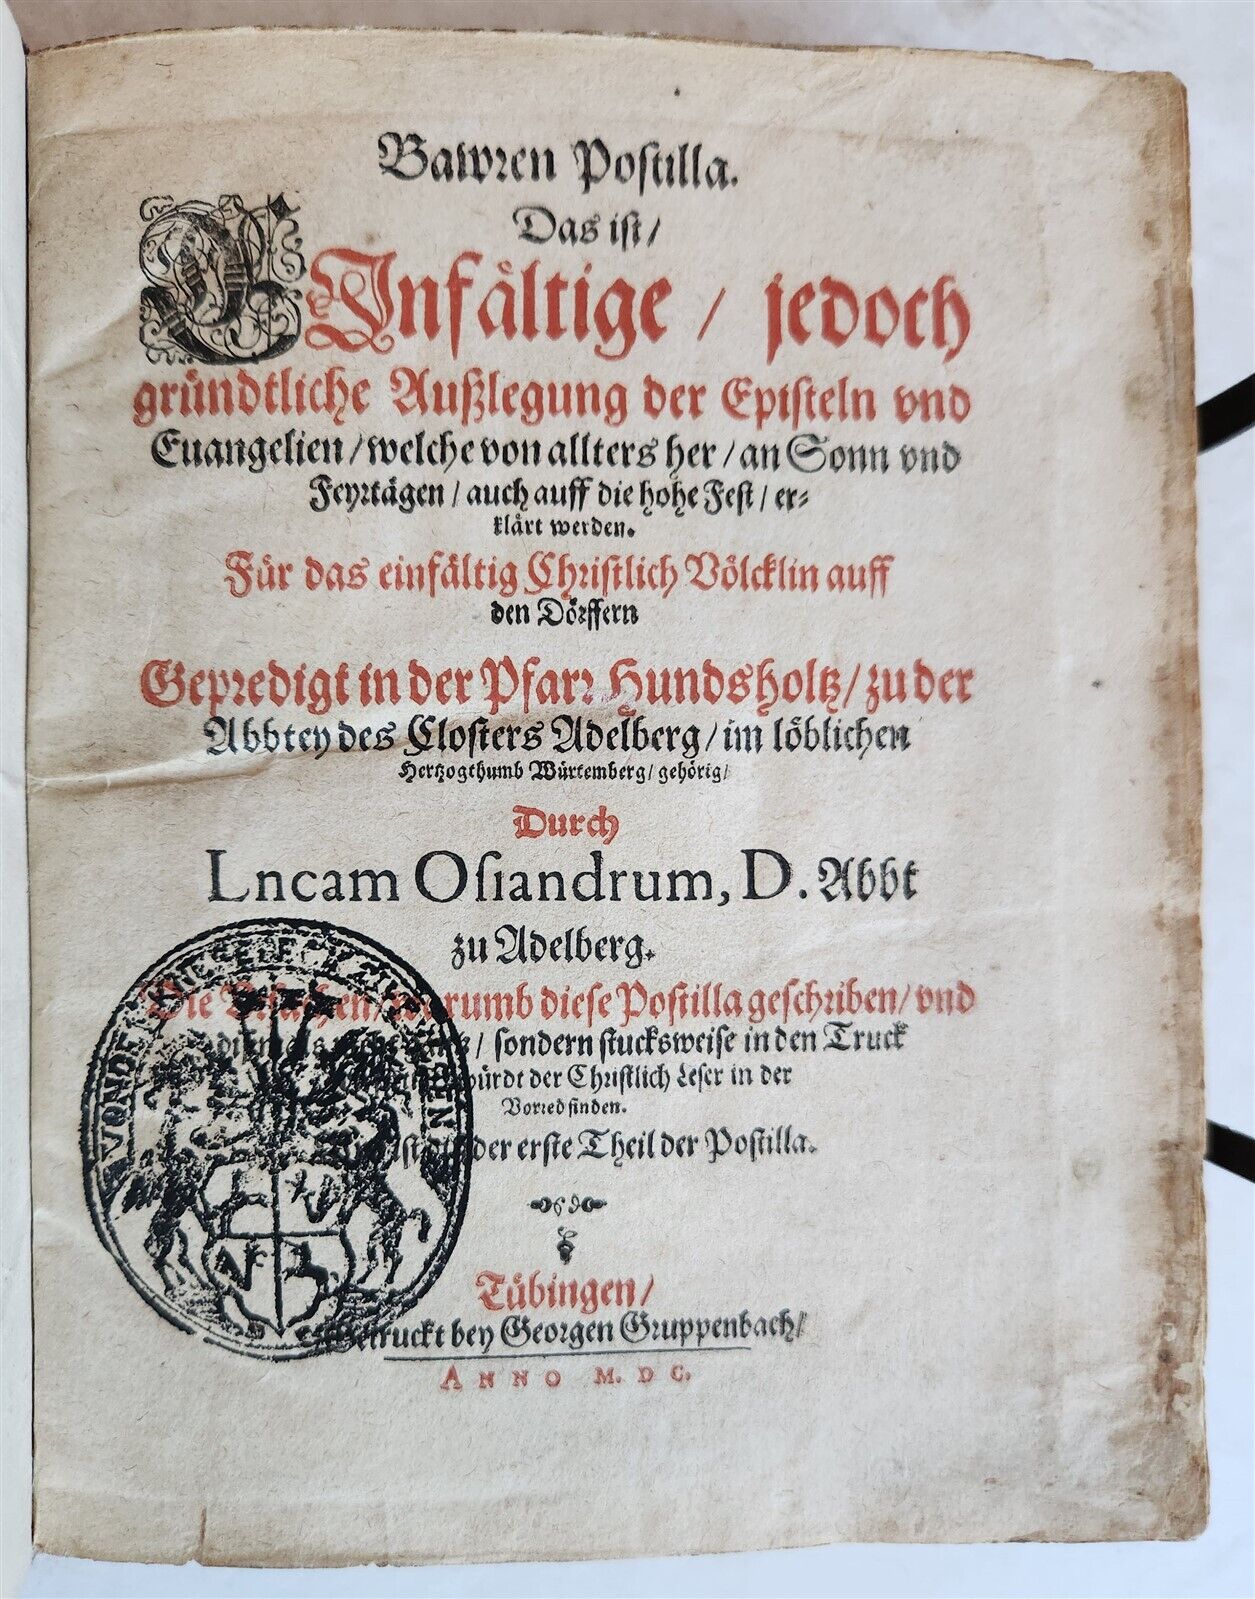 Bawren Postilla.
Das ist/
EInfåltige / jedoch
gründtliche Außlegung der Episteln vnd
Euangelien / welche von allters her / an Sonn vnd
Feyrtågen / auch auff die hohe Fest / er-
klårt werden.
Für das einfåltig Christlich Völcklin auff
den Dörffern
Gepredigt in der Pfarr Hundsholtz / zu der
Abbtey des Closters Adelberg / im löblichen
Hertzogthumb Würtemberg / gehörig /
Durch
Lncam Osiandrum, D. Abbt
zu Adelberg.
Die Vrsachen / warumb diese Postilla geschriben / vnd
/ sondern stucksweise in den Truck
würdt der Christlich Leser in der
Vorred finden.
Ist der erste Theil der Postilla.
Tübingen /
Getruckt bey Georgen Gruppenbach /
ANNO M. DC.